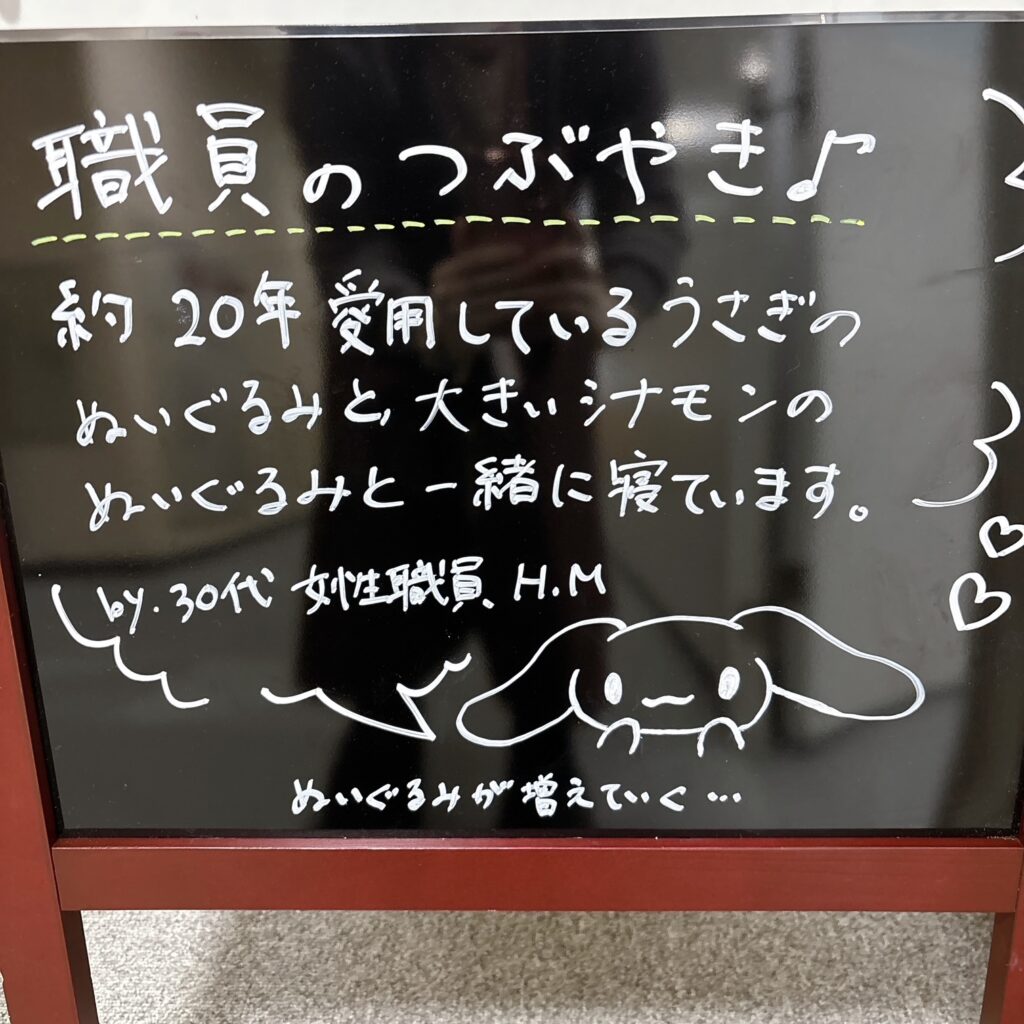 職員のつぶやき♪
約20年愛用しているうさぎの
ぬいぐるみと、大きいシナモンの
ぬいぐるみと一緒に寝ています。
by.30代 女性職員 H.M
ぬいぐるみが増えていく…